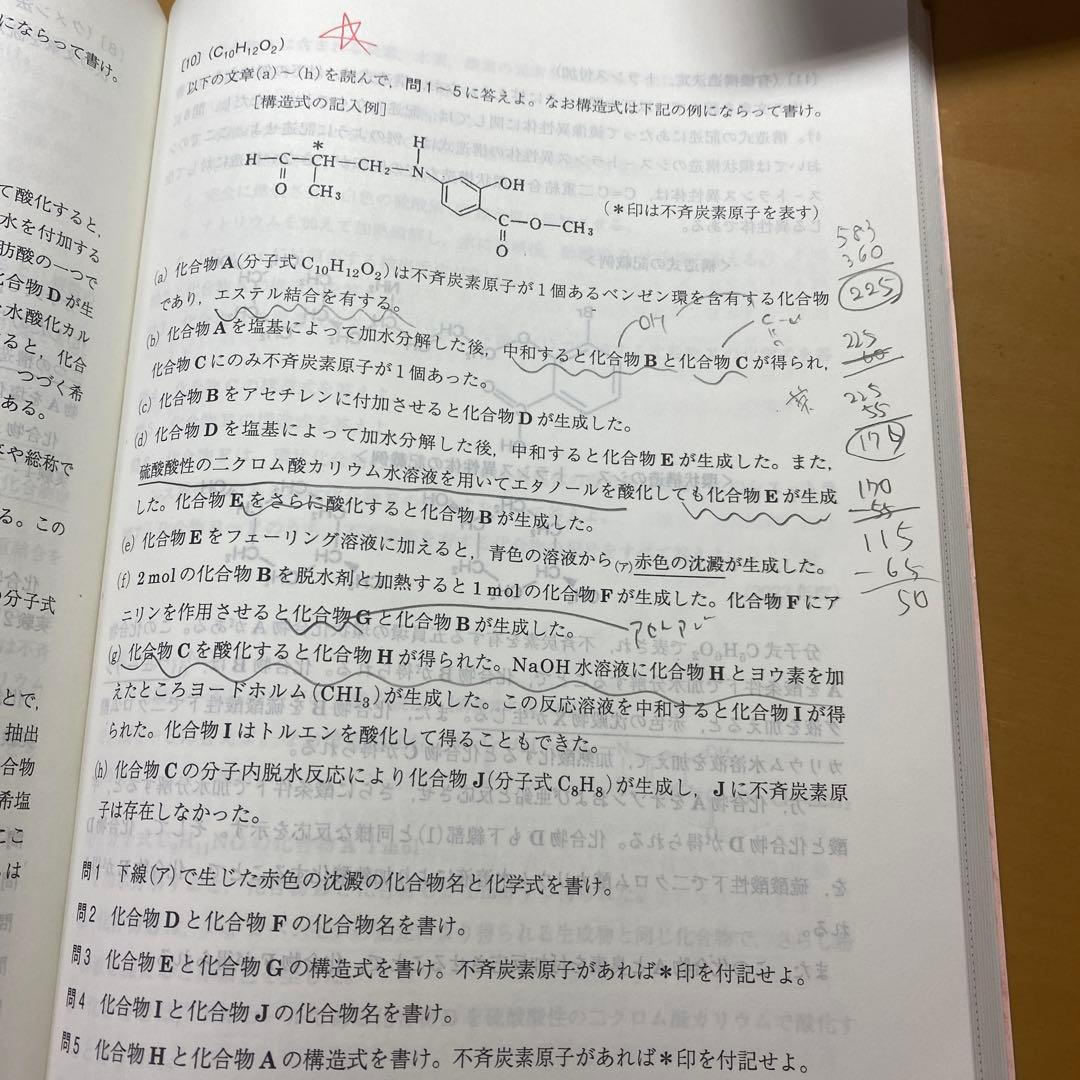 にならって書け。
〔10〕(C₁₀H₁₂O₂)
以下の文章(a)～(h)を読んで，問1～5に答えよ。なお構造式は下記の例にならって書け。
［構造式の記入例］
H－C－*CH－CH₂－N－H
O CH₃
OH
C－O－CH₃
O
(＊印は不斉炭素原子を表す)
(a) 化合物A(分子式C₁₀H₁₂O₂)は不斉炭素原子が1個あるベンゼン環を含有する化合物
であり，エステル結合を有する。
(b) 化合物Aを塩基によって加水分解した後，中和すると化合物Bと化合物Cが得られ，
化合物Cにのみ不斉炭素原子が1個あった。
(c) 化合物Bをアセチレンに付加させると化合物Dが生成した。
(d) 化合物Dを塩基によって加水分解した後，中和すると化合物Eが生成した。また，
硫酸酸性の二クロム酸カリウム水溶液を用いてエタノールを酸化しても化合物Eが生成
した。化合物Eをさらに酸化すると化合物Bが生成した。
(e) 化合物Eをフェーリング溶液に加えると，青色の溶液から(ア)赤色の沈澱が生成した。
(f) 2molの化合物Bを脱水剤と加熱すると1molの化合物Fが生成した。化合物Fにア
ニリンを作用させると化合物Gと化合物Bが生成した。
(g) 化合物Cを酸化すると化合物Hが得られた。NaOH水溶液に化合物Hとヨウ素を加
えたところヨードホルム(CHI₃)が生成した。この反応溶液を中和すると化合物Iが得
られた。化合物Iはトルエンを酸化して得ることもできた。
(h) 化合物Cの分子内脱水反応により化合物J(分子式C₈H₈)が生成し，Jに不斉炭素原
子は存在しなかった。
問1 下線(ア)で生じた赤色の沈澱の化合物名と化学式を書け。
問2 化合物Dと化合物Fの化合物名を書け。
問3 化合物Eと化合物Gの構造式を書け。不斉炭素原子があれば＊印を付記せよ。
問4 化合物Iと化合物Jの化合物名を書け。
問5 化合物Hと化合物Aの構造式を書け。不斉炭素原子があれば＊印を付記せよ。
583
360
225
225
60
225
55
170
55
115
-65
50
OH
て酸化すると，
水を付加する
肪酸の一つで
化合物Dが生
水酸化カル
ると，化合
つづく希
ある。
や総称で
る。この
分子式
とで，
抽出
合物
希塩
ここ
は